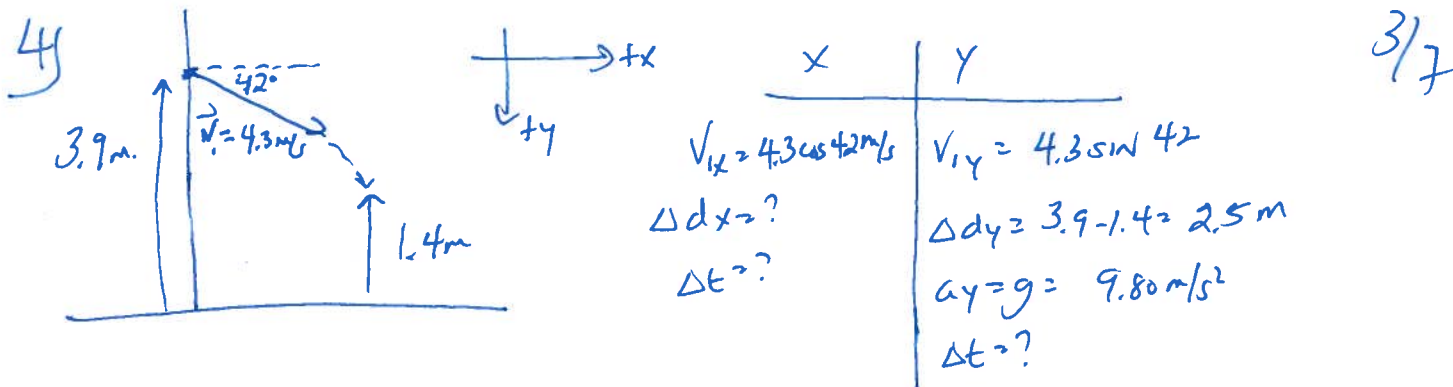 4)
3/7
42°
3.9m.
V⃗₁=4.3m/s
1.4m
+x
+y
X Y
V₁ₓ=4.3cos42m/s V₁y = 4.3 sin 42
Δdx=? Δdy = 3.9-1.4= 2.5m
Δt=? ay=g= 9.80m/s²
Δt=?